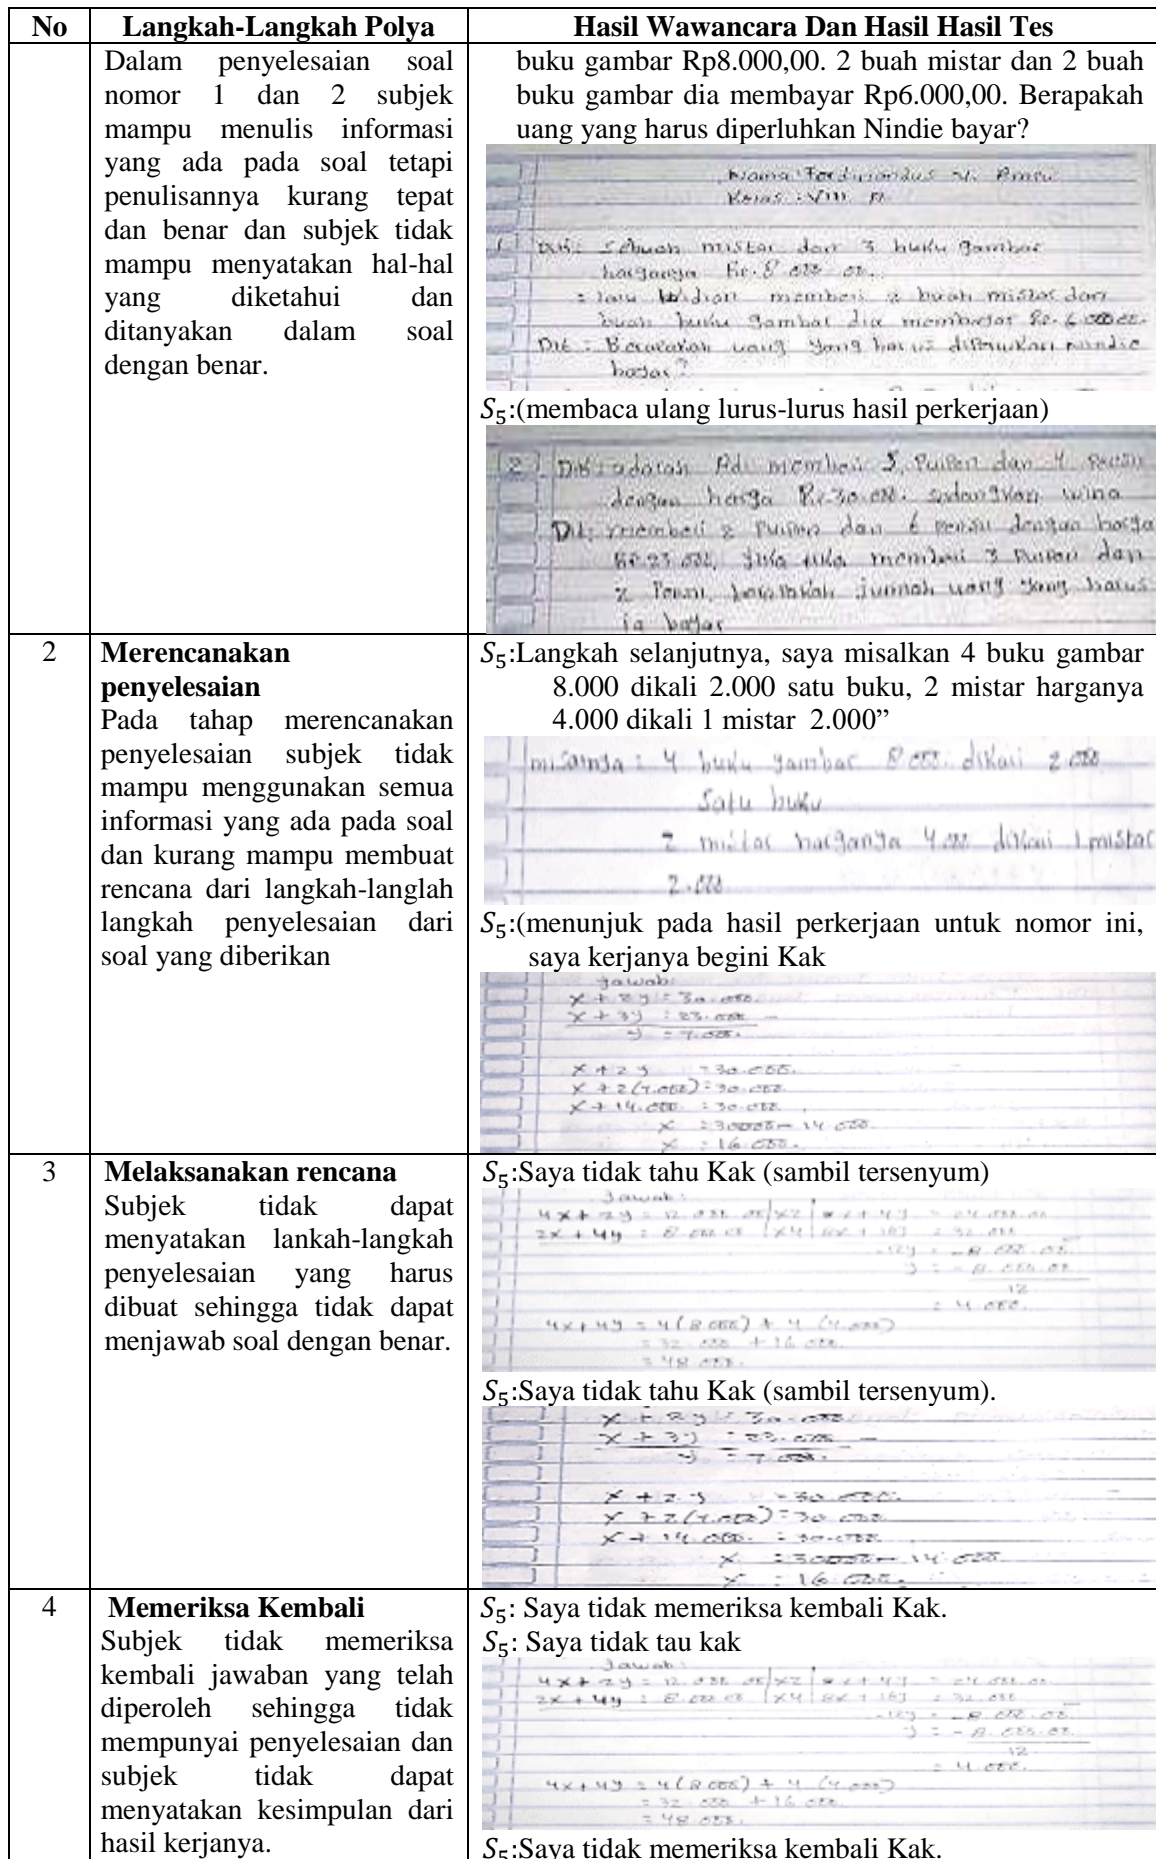 No Langkah-Langkah Polya Hasil Wawancara Dan Hasil Hasil Tes
Dalam penyelesaian soal
nomor 1 dan 2 subjek
mampu menulis informasi
yang ada pada soal tetapi
penulisannya kurang tepat
dan benar dan subjek tidak
mampu menyatakan hal-hal
yang diketahui dan
ditanyakan dalam soal
dengan benar.
buku gambar Rp8.000,00. 2 buah mistar dan 2 buah
buku gambar dia membayar Rp6.000,00. Berapakah
uang yang harus diperluhkan Nindie bayar?
Nama
Kelas : VIII
mistar dan 3 buku gambar
harganya
2 buah mistar dan
buah buku gambar dia
uang yang harus
S₅:(membaca ulang lurus-lurus hasil perkerjaan)
2
dan 4
dengan wina
2 dan 6 dengan
3 dan
2 uang yang harus
ia
2 Merencanakan
penyelesaian
Pada tahap merencanakan
penyelesaian subjek tidak
mampu menggunakan semua
informasi yang ada pada soal
dan kurang mampu membuat
rencana dari langkah-langlah
langkah penyelesaian dari
soal yang diberikan
S₅:Langkah selanjutnya, saya misalkan 4 buku gambar
8.000 dikali 2.000 satu buku, 2 mistar harganya
4.000 dikali 1 mistar 2.000”
4 buku gambar 8.000 dikali 2.000
Satu buku
2 mistar harganya 4.000 dikali 1 mistar
2.000
S₅:(menunjuk pada hasil perkerjaan untuk nomor ini,
saya kerjanya begini Kak
Jawab:
x + 2y = 30.000
x + 3y = 23.000 -
y = 7.000.
x + 2y = 30.000.
x + 2(7.000) = 30.000
x + 14.000 = 30.000
x = 30000 - 14.000
x = 16.000.
3 Melaksanakan rencana
Subjek tidak dapat
menyatakan lankah-langkah
penyelesaian yang harus
dibuat sehingga tidak dapat
menjawab soal dengan benar.
S₅:Saya tidak tahu Kak (sambil tersenyum)
Jawab:
4x + 2y = |x2| 8x + 4y =
2x + 4y = |x4| 8x + 16y = 32.000
-12y =
y =
12
= 4.000.
4x + 4y = 4(8.000) + 4 (4.000)
= 32.000 + 16.000
= 48.000.
S₅:Saya tidak tahu Kak (sambil tersenyum).
x + 2y = 30.000
x + 3y = 23.000 -
y = 7.000.
x + 2y = 30.000.
x + 2(7.000) = 30.000
x + 14.000. = 30.000
x = 30000 - 14.000
x = 16.000.
4 Memeriksa Kembali
Subjek tidak memeriksa
kembali jawaban yang telah
diperoleh sehingga tidak
mempunyai penyelesaian dan
subjek tidak dapat
menyatakan kesimpulan dari
hasil kerjanya.
S₅: Saya tidak memeriksa kembali Kak.
S₅: Saya tidak tau kak
Jawab:
4x + 2y = |x2| 8x + 4y =
2x + 4y = |x4| 8x + 16y = 32.000
-12y =
y =
12
= 4.000.
4x + 4y = 4(8.000) + 4 (4.000)
= 32.000 + 16.000
= 48.000.
S₅:Saya tidak memeriksa kembali Kak.